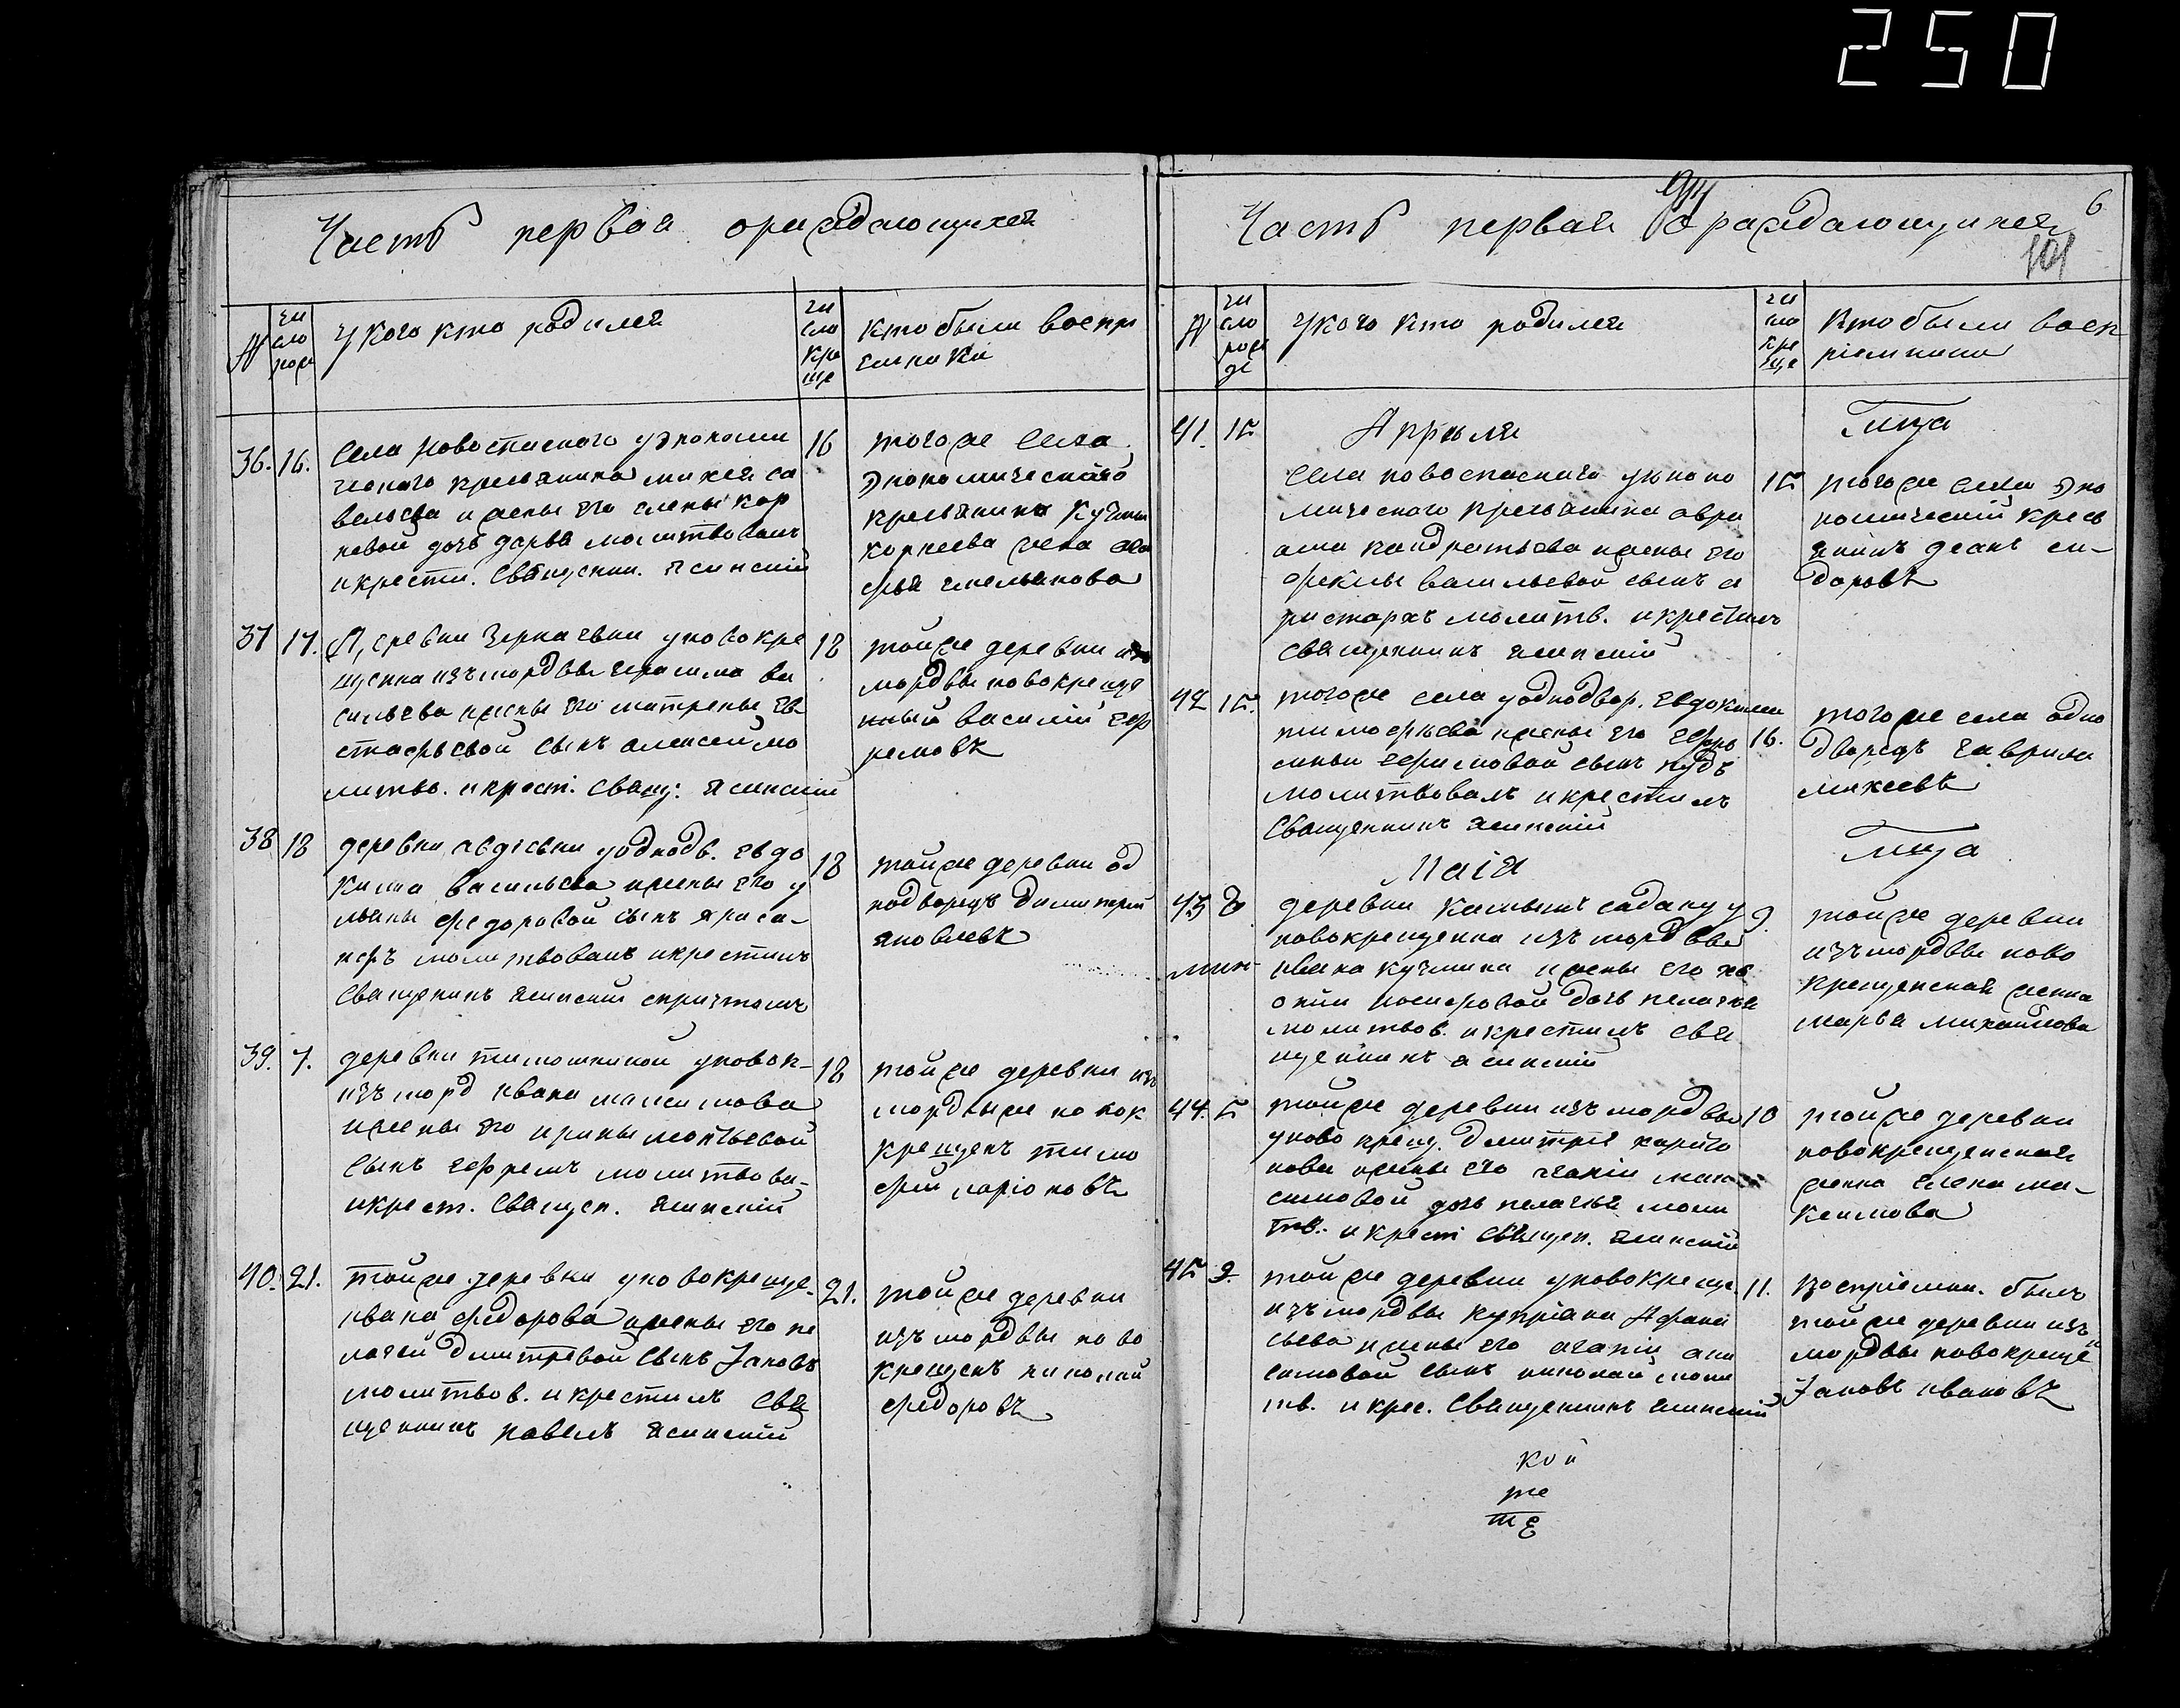 250
Часть первая ораждающихся
№
чи
сло
рож
у кого кто родился
чи
сло
кре
ще
кто были воспри
емники
36. 16.
села новоспаского уэкономи
ческого крестьянина михея са
вельева и жены его елены кор
невой дочь дарья молитвовалъ
и крести. священни. ясинский
16
того же села
экономического
крестьянина кузмы
корнеева жена
емельянова
37 17.
деревни Зеркачевки уновокре
щенна изъ мордвы герасима ва
сильева и жены его матрены ев
стафьевой сынъ алексей мо
литво. и крест. свящ. ясинский
18
той же деревни изъ
мордвы новокреще
ный василий еф
ремовъ
38 18
деревни авдеевки уоднодв. евдо
кима васильева и жены его у
льяны федоровой сынъ
молитвовалъ и крестилъ
священникъ ясинский спричтомъ
18
той же деревни од
нодворецъ Димитрий
яковлевъ
39. 7.
деревни тимошкиной уновок-
изъ морд ивана максимова
и жены его ирины
сынъ ефремъ молитвова-
и крест. священ. ясинский
18
той же деревни изъ
мордвы же новок
крещенъ тимо
фей ларионовъ
40. 21.
той же деревни уновокреще-
ивана федорова и жены его пе
лагеи дмитревой сынъ Iаковъ
молитвов. и крестилъ свя
щенникъ павелъ ясинский
21.
той же деревни
изъ мордвы ново
крещенъ николай
федоровъ
Часть первая о раждающихся
6
101
№
чи
сло
рож
де
у кого кто родился
чи
сло
кре
ще
кто были восп
риемники
41. 15
Апрыля
села новоспаского уэконо
мического крестьянина авра
ама кондратьева и жены его
феклы васильевой сынъ а
ристархъ молитв. и крестилъ
священникъ ясинский
Лица
15
того же села эко
номический кресь
янинъ демьянъ си-
доровъ
42 15.
того же села уоднодвор. евдокима
тимофеева и жены его
ефимовой сынъ
молитвовалъ и крестилъ
священникъ ясинский
16.
того же села одно
дворецъ гаврила
михеевъ
Маiя
Лица
43 8
деревни камышъ садаку у
новокрещенна изъ мордвы
ивана кузмина и жены его хе
онии никифоровой дочь пелагея
молитвов. и крестилъ свя
щенникъ ясинский
9.
той же деревни
изъ мордвы ново
крещенская женка
марья михайлова
44. 5
той же деревни изъ мордвы
уново крещ. дмитрия харито
нова и жены его агапии мак
симовой дочь пелагея моли
тв. и крест священ. ясинский
10
той же деревни
новокрещенская
женка елена ма-
ксимова
45 9
той же деревни уновокреще
изъ мордвы куприана Афана
сьева и жены его агапии ани
симовой сынъ николай моли
тв. и крес. священникъ ясинский
11.
восприемни. былъ
той же деревни изъ
мордвы новокреще
Iаковъ ивановъ